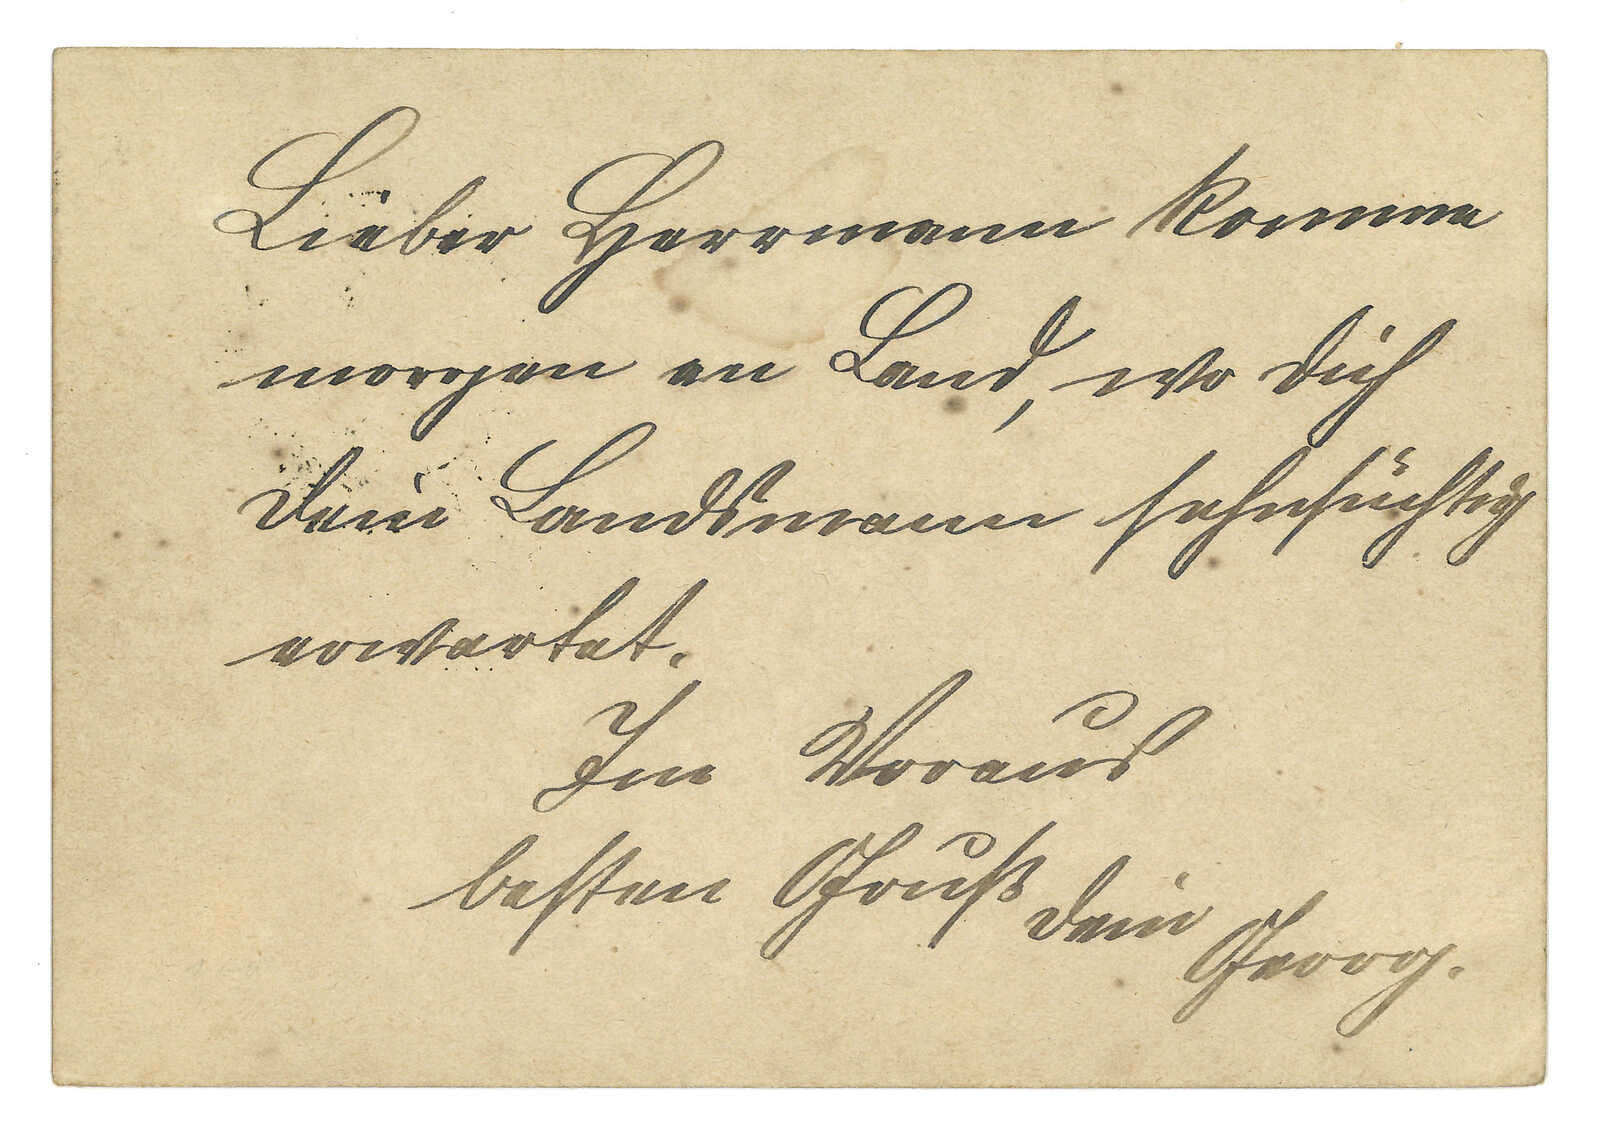 Lieber Herrmann komme
morgen an Land, wo Dich
Dein Landsmann sehnsüchtig
erwartet.
Im Voraus
besten Gruß Dein
Georg.